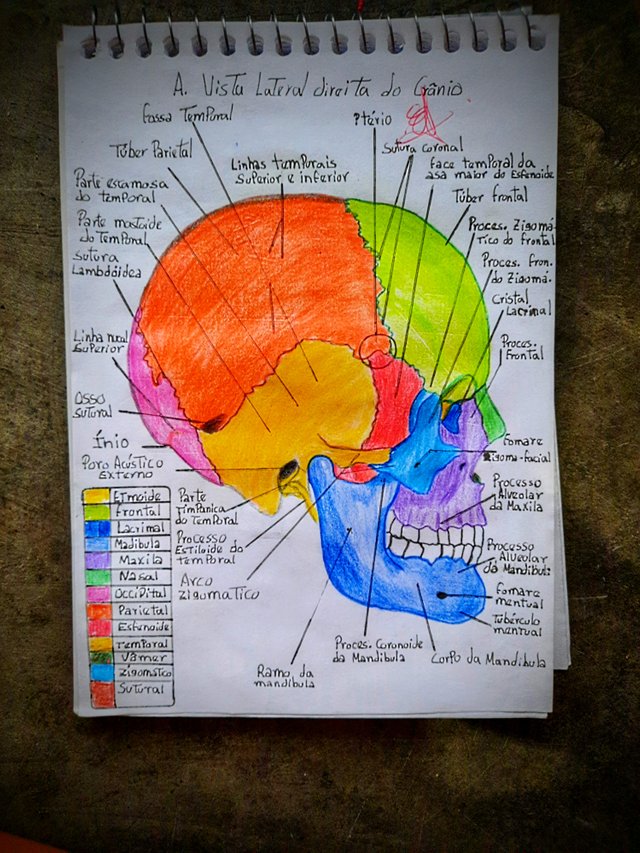 A. Vista Lateral direita do Crânio
fossa Temporal
Ptério
Túber Parietal
Linhas temporais
Superior e inferior
Sutura coronal
face temporal da
asa maior do Esfenoide
Parte escamosa
do temporal
Túber frontal
Parte mastoide
do Temporal
Proces. Zigomá-
tico do frontal
Sutura
Lambdóidea
Proces. fron.
do Zigomá.
Cristal
Lacrimal
Linha nucal
Superior
Proces.
frontal
Osso
sutural
Ínio
Poro Acústico
Externo
Fomare
Zigoma-facial
Processo
Alveolar
da Maxila
Parte
Timpânica
do Temporal
Processo
Estiloide do
temporal
Arco
Zigomatico
Processo
Alveolar
da Mandibula
Fomare
mentual
Tubérculo
mentual
Proces. Coronoide
da Mandibula
Corpo da Mandibula
Ramo da
mandibula
Etmoide
Frontal
Lacrimal
Madibula
Maxila
Nasal
Occipital
Parietal
Esfenoide
Temporal
Vâmer
Zigomático
Sutural